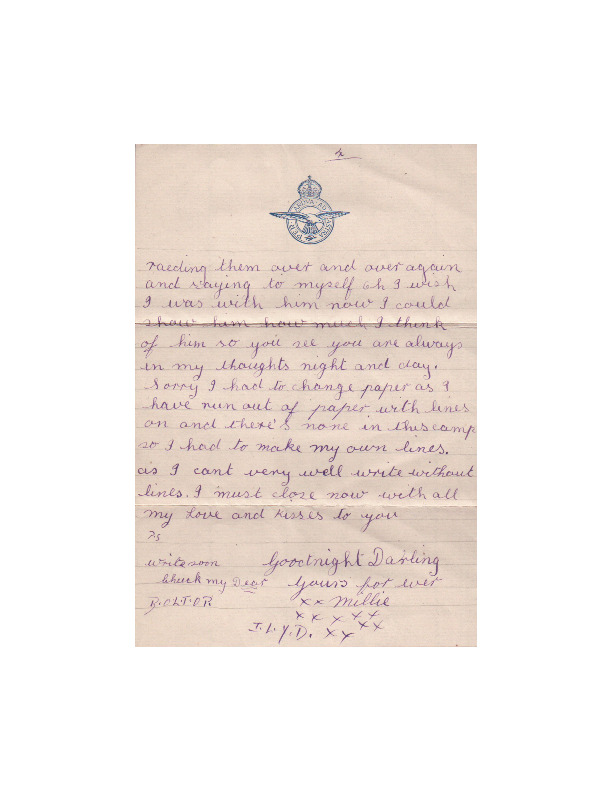 4
PER ARDUA AD ASTRA
raeding them over and over again
and saying to myself oh I wish
I was with him now I could
show him how much I think
of him so you see you are always
in my thoughts night and day.
Sorry I had to change paper as I
have run out of paper with lines
on and there's none in this camp
so I had to make my own lines.
as I cant very well write without
lines. I must close now with all
my love and kisses to you
PS
write soon Goodnight Darling
Chuck my Dear Yours for ever
B.O.L.T.O.P. x x Millie
x x x x x
I.L.Y.D. x x x x